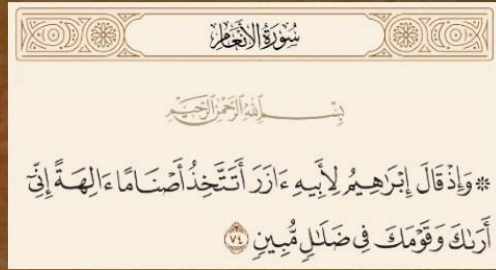 سُورَةُ الأَنْعَامِ
بِسْمِ اللَّهِ الرَّحْمَٰنِ الرَّحِيمِ
۞ وَإِذْ قَالَ إِبْرَٰهِيمُ لِأَبِيهِ ءَازَرَ أَتَتَّخِذُ أَصْنَامًا ءَالِهَةً إِنِّيٓ
أَرَىٰكَ وَقَوْمَكَ فِي ضَلَٰلٍ مُّبِينٍ ٧٤